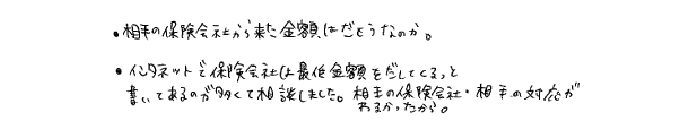 ・相手の保険会社から来た金額はだとうなのか。
・インタネットで保険会社は最低金額をだしてくる、と
書いてあるのが多くて相談しました。相手の保険会社・相手の対応が
わるかったから。